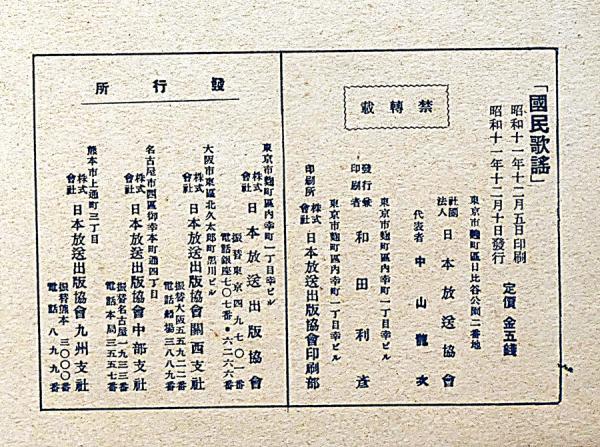 「國民歌謠」
昭和十一年十二月五日印刷
昭和十一年十二月十日發行
定價 金五錢
禁轉載
東京市麴町區日比谷公園二番地
社團法人 日本放送協會
代表者 中山龍次
東京市麴町區內幸町一丁目幸ビル
發行兼印刷者 和田利彥
東京市麴町區內幸町一丁目幸ビル
印刷所 株式會社 日本放送出版協會印刷部
發行所
東京市麴町區內幸町一丁目幸ビル
株式會社 日本放送出版協會
振替東京四九七〇一番
電話銀座七〇七番・六二六六番
大阪市東區北久太郎町黑川ビル
株式會社 日本放送出版協會關西支社
振替大阪五五九二二番
電話船場三八八九番
名古屋市西區御幸本町通四丁目
株式會社 日本放送出版協會中部支社
振替名古屋一九三三番
電話本局三五五七番
熊本市上通町三丁目
株式會社 日本放送出版協會九州支社
振替熊本三〇〇〇番
電話八九九番